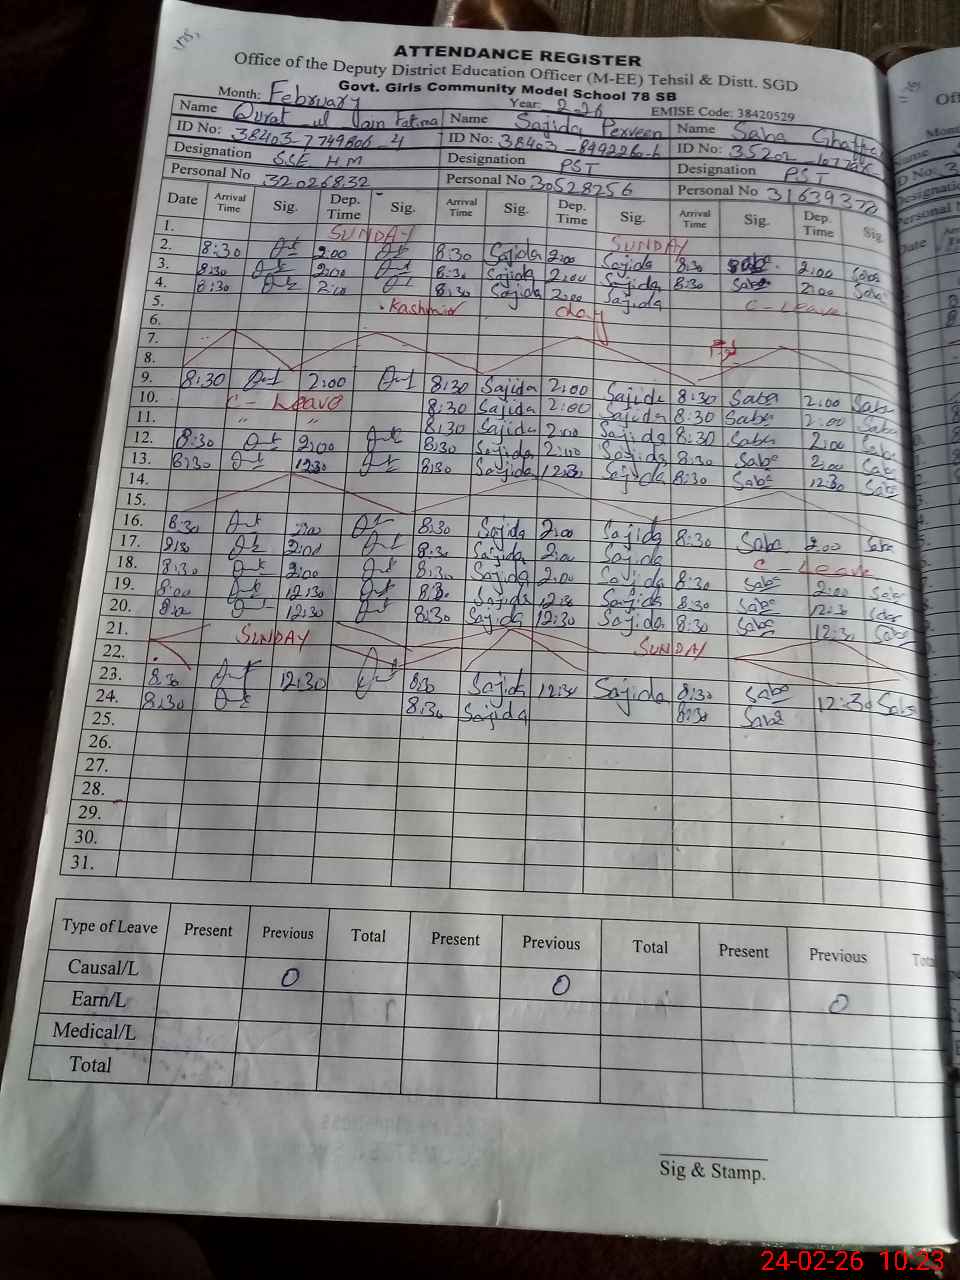 ATTENDANCE REGISTER
Office of the Deputy District Education Officer (M-EE) Tehsil & Distt. SGD
Govt. Girls Community Model School 78 SB
Month: February Year: 2-26 EMISE Code: 38420529
Name Qurat ul Name Sajida Perveen Name Saba
ID No: ID No: ID No:
Designation SSE HM Designation PST Designation PST
Personal No 32026832 Personal No 30528256 Personal No
Date Arrival Time Sig. Dep. Time Sig. Arrival Time Sig. Dep. Time Sig. Arrival Time Sig. Dep. Time Sig.
1. SUNDAY SUNDAY
2. 8:30 2:00 8:30 Sajida 2:00 Sajida 8:30 Saba 2:00 Saba
3. 8:30 2:00 8:30 Sajida 2:00 Sajida 8:30 Saba 2:00 Saba
4. 8:30 2:00 8:30 Sajida 2:00 Sajida C-Leave
5. Kashmir day
6.
7.
8.
9. 8:30 2:00 8:30 Sajida 2:00 Sajida 8:30 Saba 2:00 Saba
10. C-Leave 8:30 Sajida 2:00 Sajida 8:30 Saba 2:00 Saba
11. " " 8:30 Sajida 2:00 Sajida 8:30 Saba 2:00 Saba
12. 8:30 2:00 8:30 Sajida 2:00 Sajida 8:30 Saba 2:00 Saba
13. 8:30 1230 8:30 Sajida 12:30 Sajida 8:30 Saba 12:30 Saba
14.
15.
16. 8:30 2:00 8:30 Sajida 2:00 Sajida 8:30 Saba 2:00 Saba
17. 8:30 2:00 8:30 Sajida 2:00 Sajida C-Leave
18. 8:30 2:00 8:30 Sajida 2:00 Sajida 8:30 Saba 2:00 Saba
19. 8:00 12:30 8:30 Sajida 12:30 Sajida 8:30 Saba 12:30 Saba
20. 8:00 12:30 8:30 Sajida 12:30 Sajida 8:30 Saba 12:30 Saba
21. SUNDAY SUNDAY
22.
23. 8:30 12:30 8:30 Sajida 12:30 Sajida 8:30 Saba 12:30 Saba
24. 8:30 8:30 Sajida 8:30 Saba
25.
26.
27.
28.
29.
30.
31.
Type of Leave Present Previous Total Present Previous Total Present Previous
Causal/L 0 0 0
Earn/L
Medical/L
Total
Sig & Stamp.
24-02-26 10:23